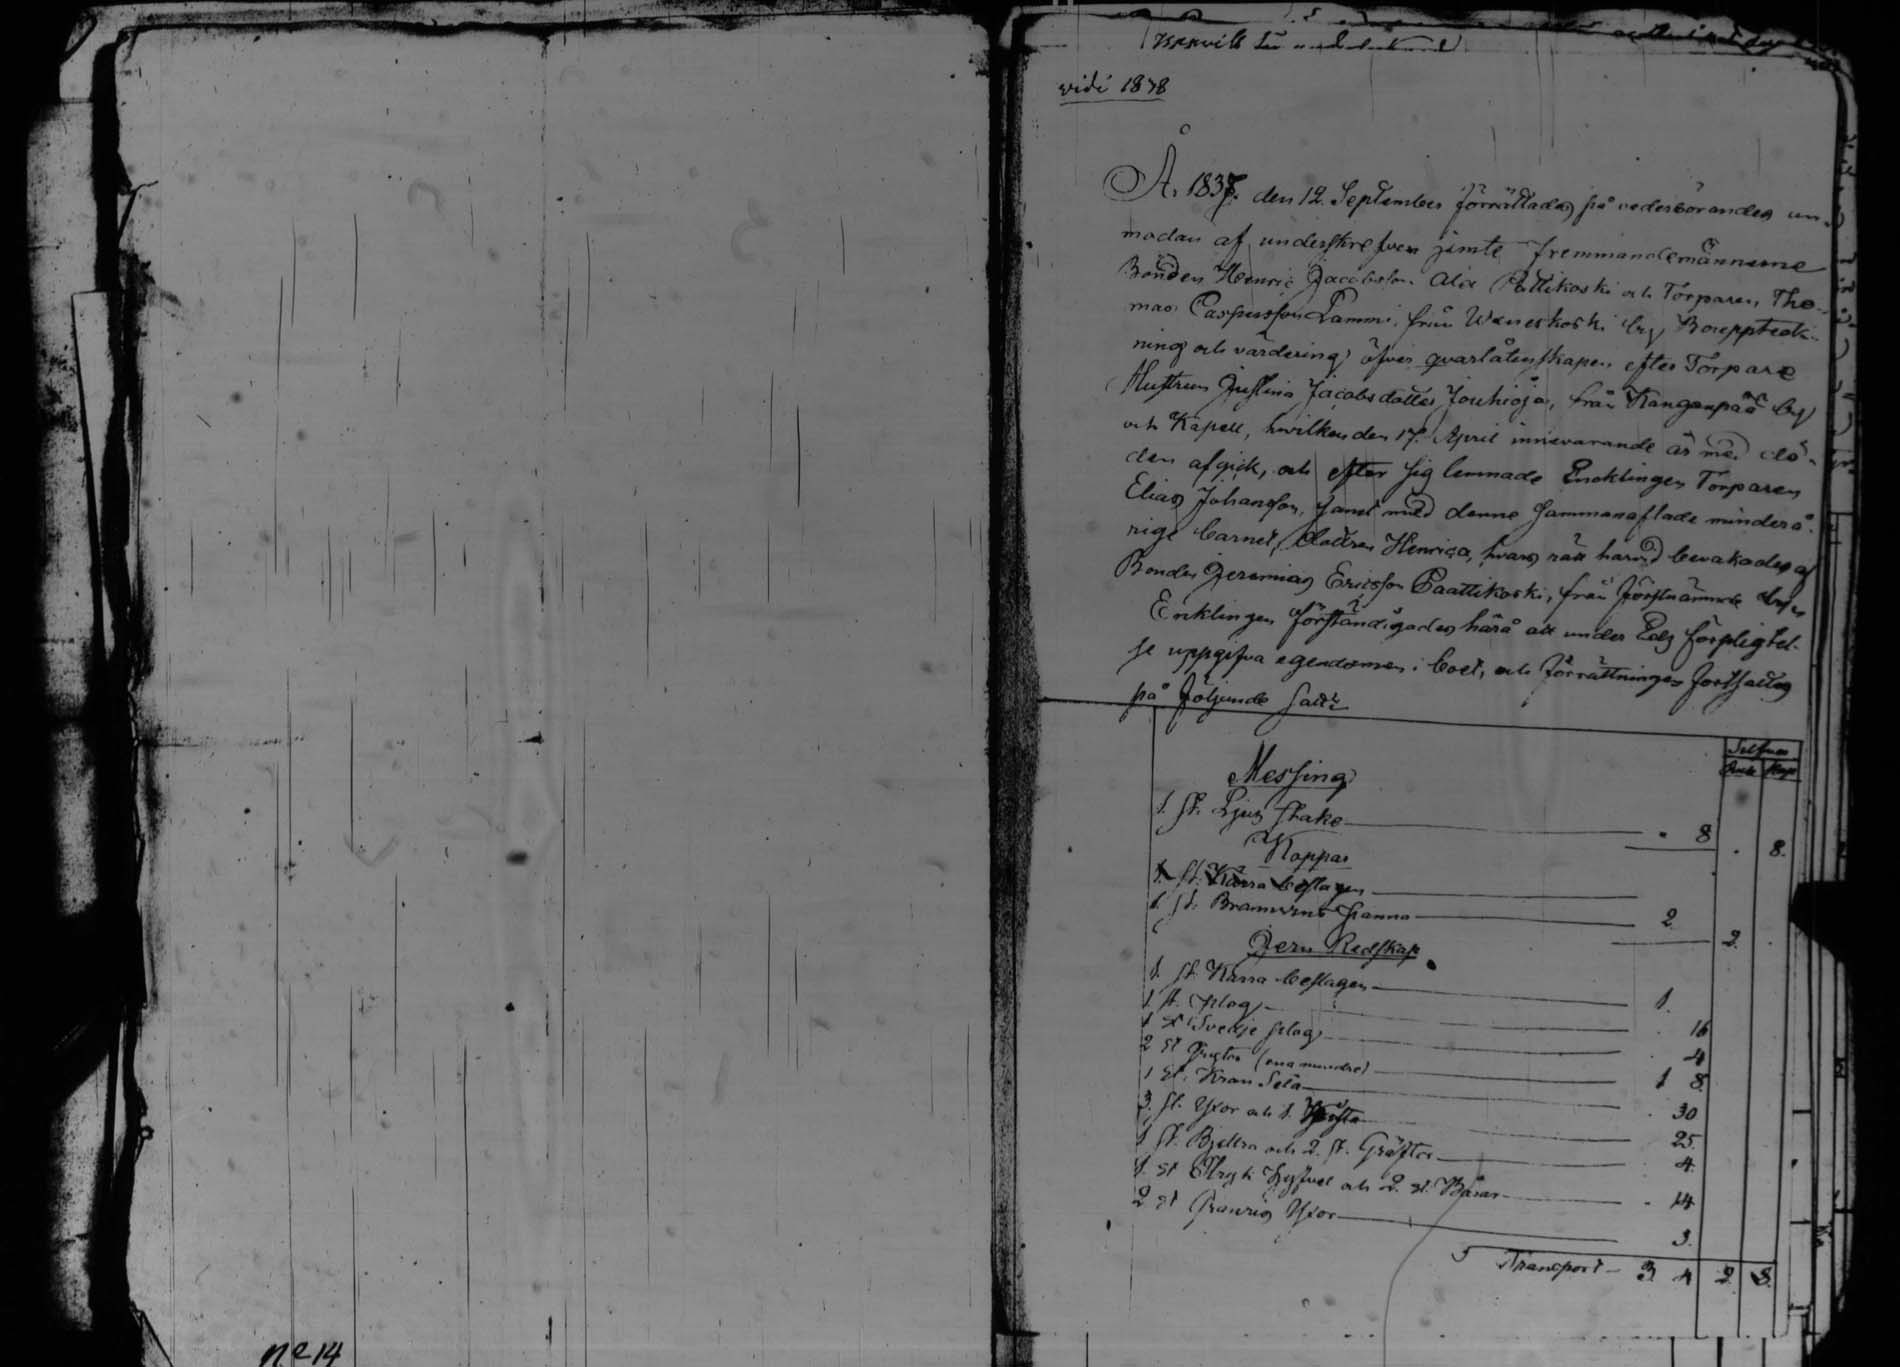 vidi 1878
År 1837. den 12. September förrättades på vederbörandes an-
modan af underskrefven jämte fremmandemännerne
Bonden Henric Jacobsson Ala Pattikoski och Torparen Tho-
mas Caspersson Lammi, från Waneskoski by Bouppteck-
ning och värdering öfver qvarlåtenskapen efter Torpare
Hustrun Justina Jacobsdotter Jouhioja, från Kanganpää by
och Kapell, hvilken den 17. April innevarande år med dö-
den afgick, och efter sig lemnade Encklingen Torparen
Elias Johansson, samt med denne sammanaflade minderå-
rige barnet, dottren Henrica, hvars rätt härvid bevakades af
Bonden Jeremias Ericsson Paattikoski, från förstnämnde by
Enklingen förständigades härå att under Eds förpligtel-
se uppgifva egendomen i boet, och förrättningen fortsattes
på följande satt
Silfver
Rub. Kop
Messing
1. st. Ljus stake 8 8.
Koppar
1. st. Kärra beslagen
1. st. Brännvins panna 2 2.
Jern Redskap
1. st. Kärra beslagen 1.
1. st. plog 16
1 st Svedje plog 4
2 st (ena mindre) 1 8.
1 st. Kran Sela 30
3. st. Yxor och 1. 25
1 st. Bjellra och 2. st. Gräftor 4.
1. st. och 2. st. 14
2 st Yxor 3.
Transport 3 4 2 8.
No 14